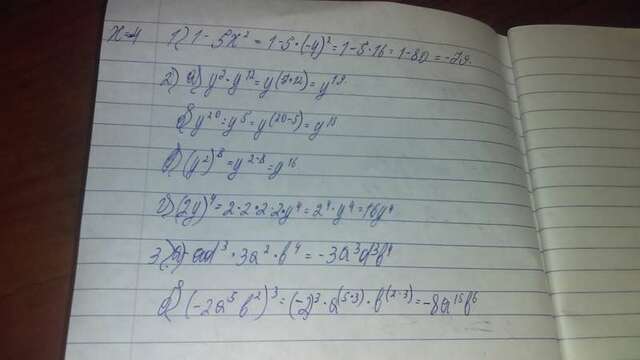 x=4 1) 1 - 5x² = 1-5·(-4)² = 1-5·16 = 1-80 = -79.
2) а) y⁷·y¹² = y(7+12) = y¹⁹
б) y²⁰ : y⁵ = y(20-5) = y¹⁵
в) (y²)⁸ = y²·⁸ = y¹⁶
г) (2y)⁴ = 2·2·2·2·y⁴ = 2⁴·y⁴ = 16y⁴
3) а) ·3a²·b⁴ = -3a³d³b⁴
б) (-2a⁵b²)³ = (-2)³·a(5·3)·b(2·3) = -8a¹⁵b⁶